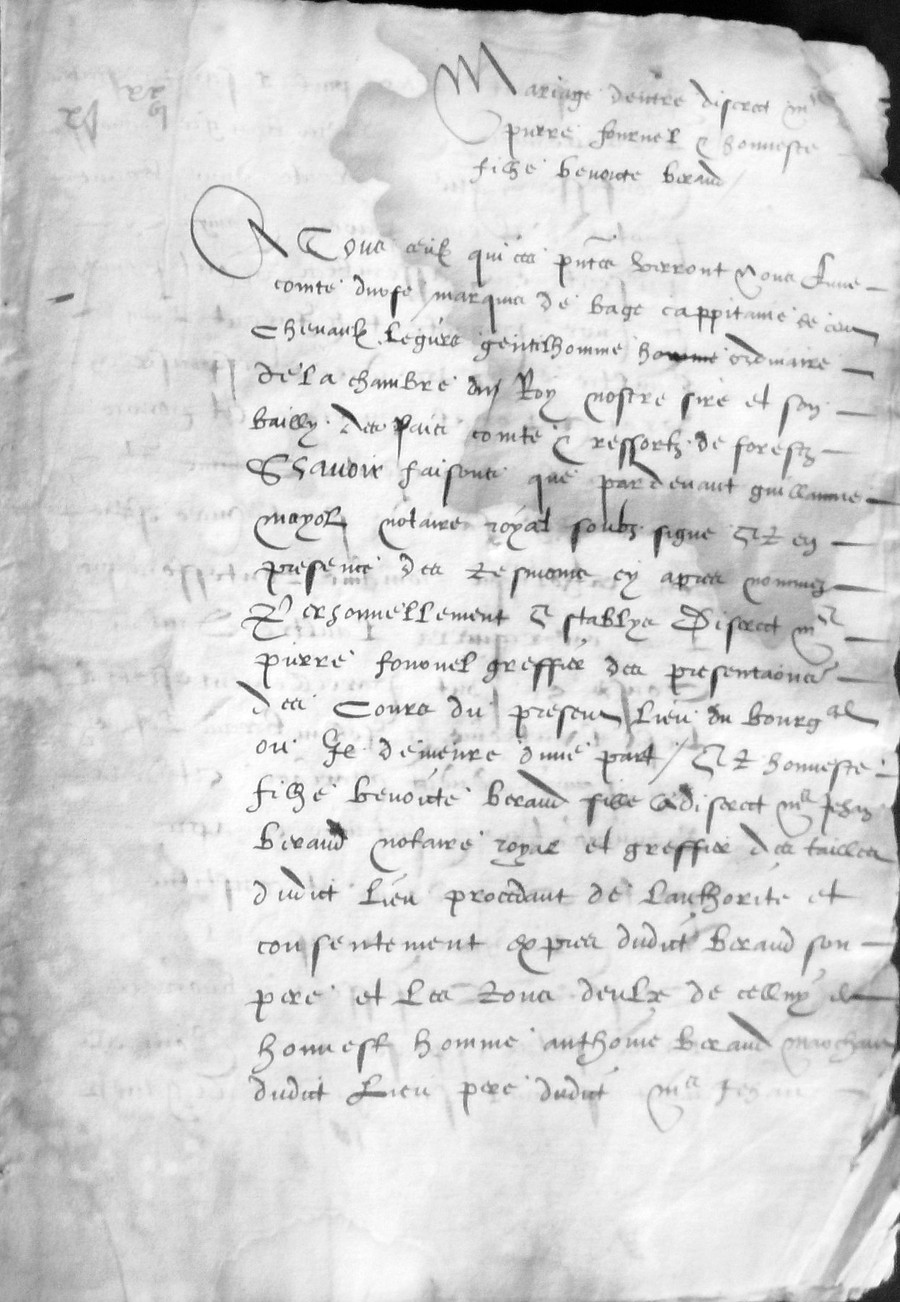 Mariage dentre discret mre
pierre fournel & honneste
filhe benoicte beraud
A Tous ceulx qui ces pntes verront Nous Anne
comte durfe marquis de bage cappitaine de cent
Chevaulx legiers gentilhomme homme ordinaire
de la chambre du Roy nostre sire et son
bailly des pais comte & ressortz de forestz
Scavoir faisons que pardevant guillaume
mayol notaire royal soubz signe Et en
presence des tesmoins cy apres nommez
Personnellement Establys Discret mre
pierre fournel greffier des presentaons
des Cours du present lieu du bourg
ou Il demeure dune part / Et honneste
filhe benoicte beraud fille a discret mre Jehan
beraud notaire royal et greffier des tailles
dudict lieu procedant de lauthorite et
consentement expres dudict beraud son
pere et les tous deulx de celluy de
honneste homme anthoine beraud marchant
dudict lieu pere dudict mre Jehan